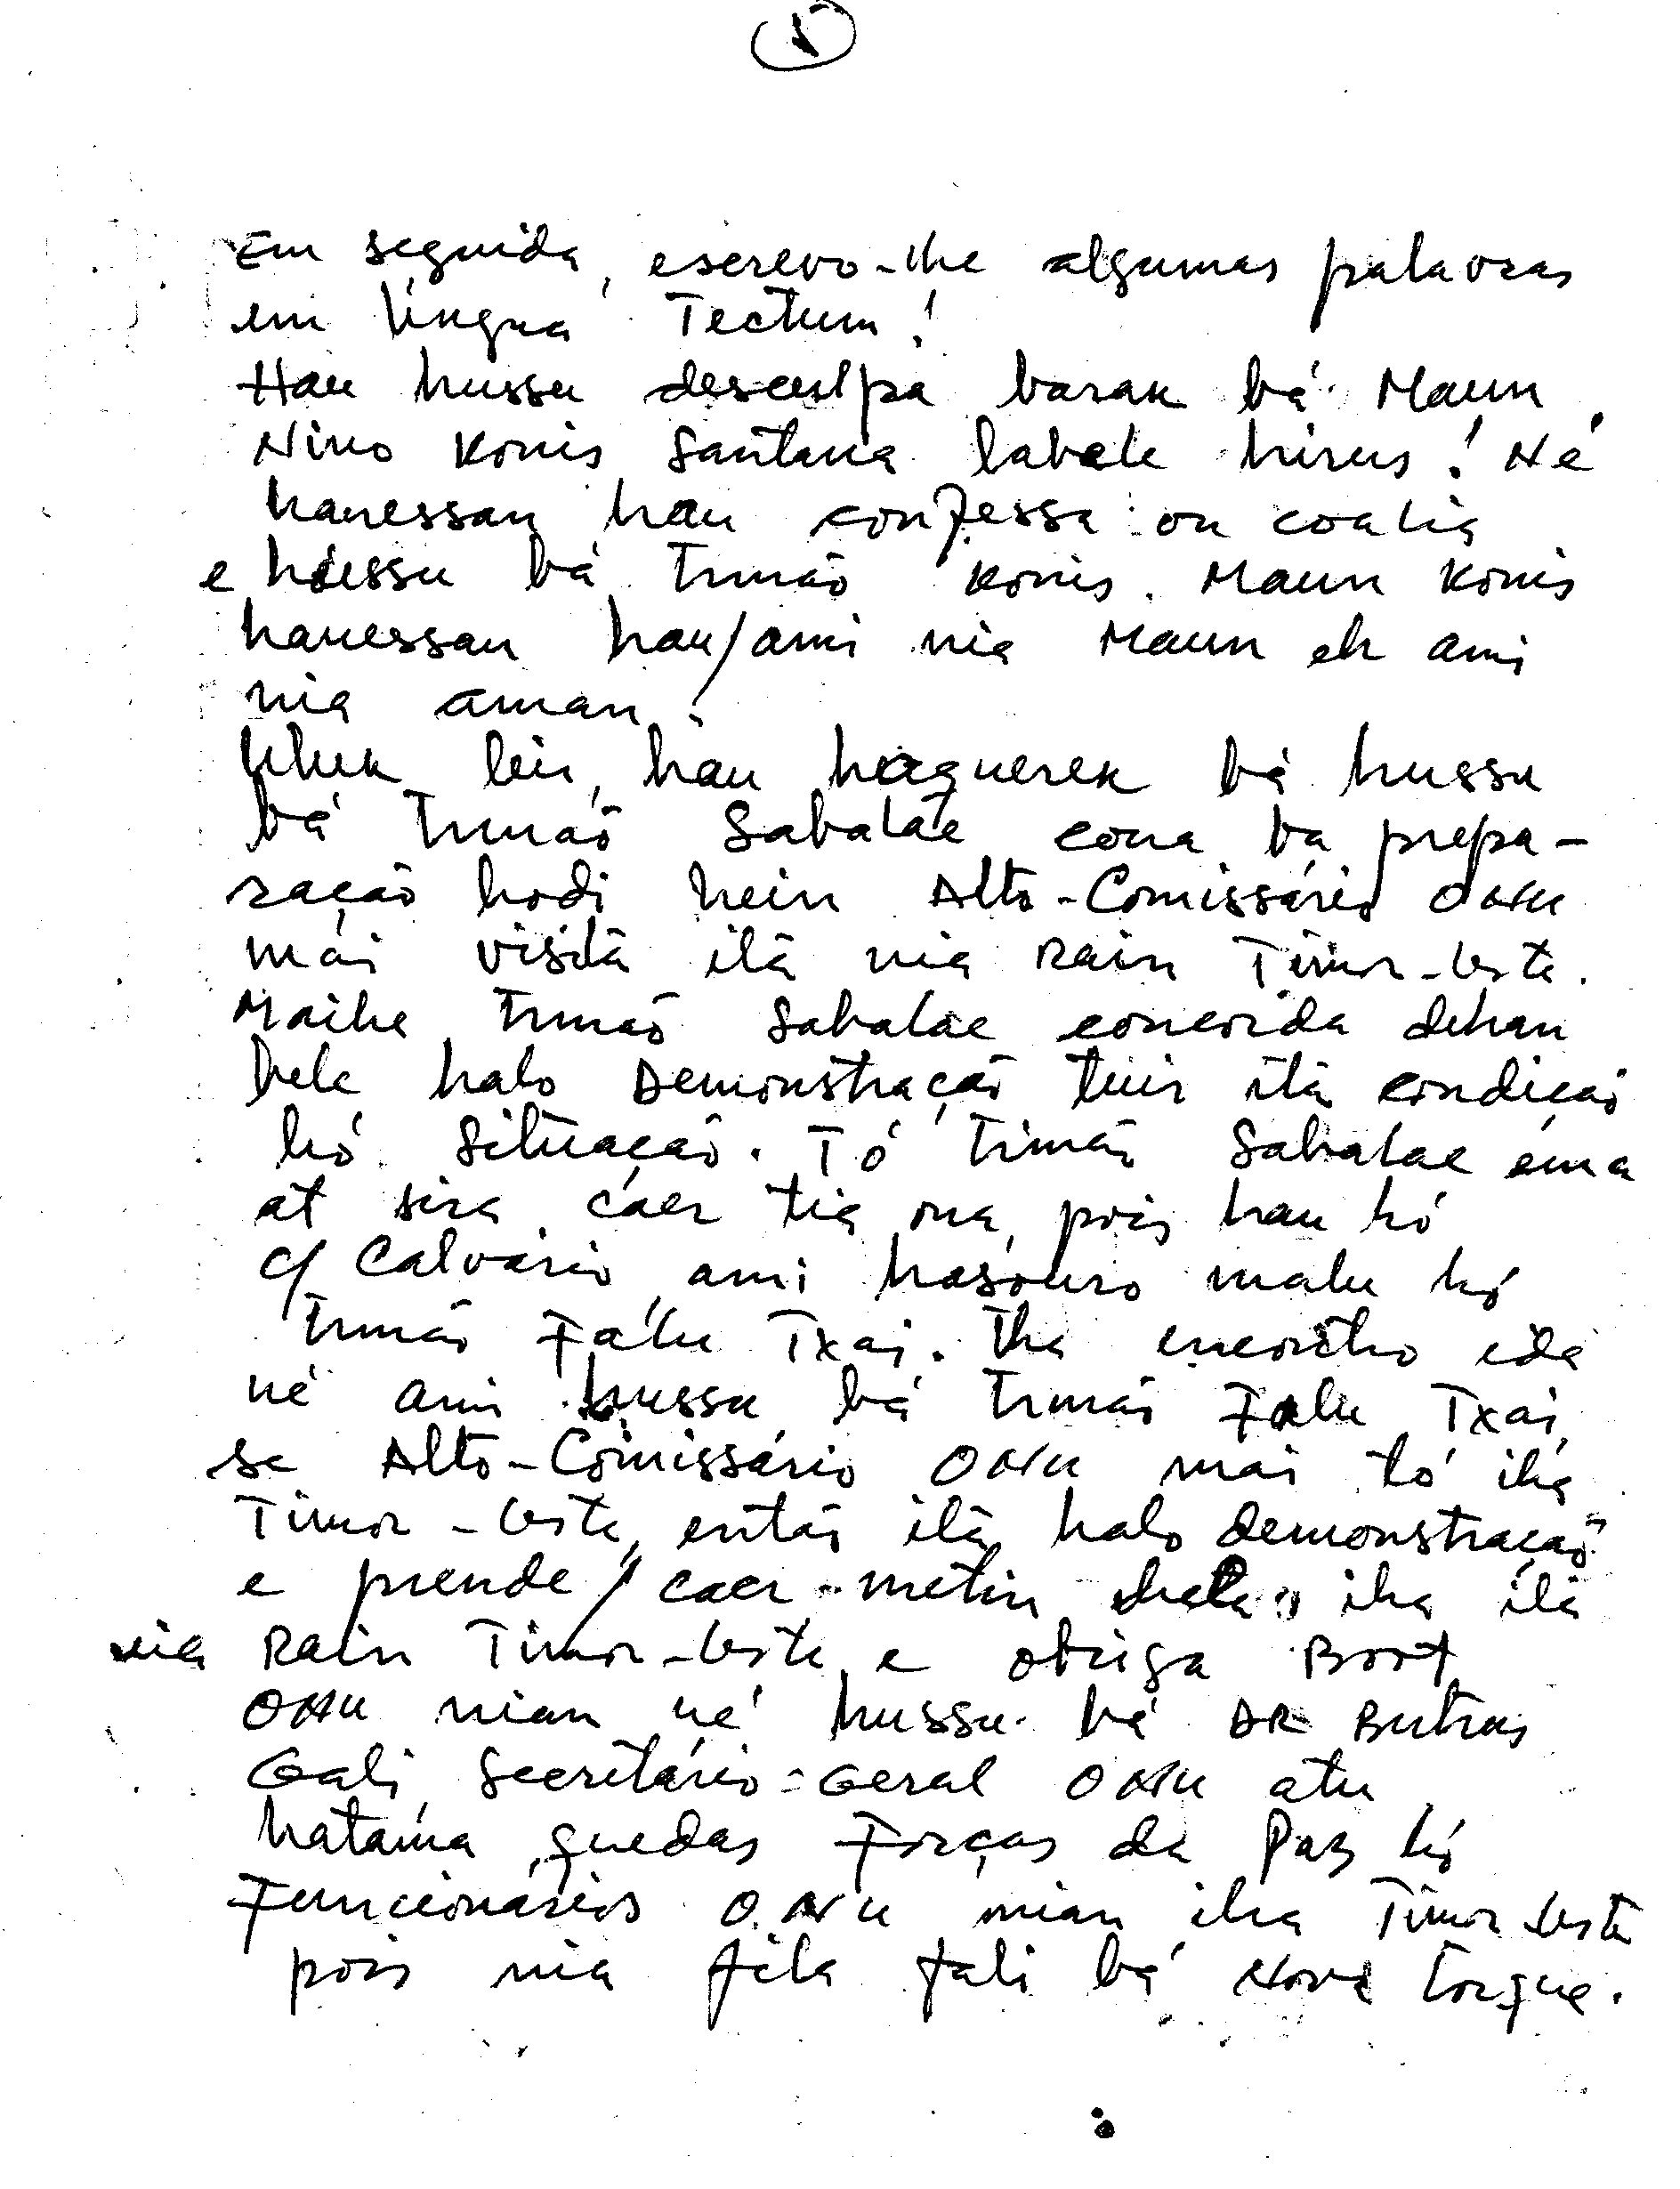 Em seguida, escrevo-lhe algumas palavras
em língua Tectum!
Hau hussu desculpa barak bá Maun
Nino Konis Santana labele hirus! Né
hanessan hau confessa ou coalia
e hussu bá Irmão Konis. Maun Konis
hanessan hau/ami nia Maun eh ami
nia aman.
Uluk leir, hau haquerek bá hussu
bá Irmão Sabalae cona ba prepa-
ração hodi hein Alto-Comissário ONU
mái visita itá nia rain Timor-Leste.
Maibe Irmão Sabalae concorda dehan
bele halo Demonstração tuir itá condição
hó situação. Tó Irmão Sabalae ema
at sira caer tia ona, pois hau hó
c/ Calvário ami hasouro malu hó
Irmão Falu Txai. Iha encontro ida
né ami hussu bá Irmão Falu Txai,
se Alto-Comissário ONU mai tó iha
Timor-Leste, então itá halo demonstração
e prende/caer-metin iha itá
nia Rain Timor-Leste e obriga Boot
ONU nian né hussu bá DR Butros
Gali Secretário-Geral ONU atu
hatama quedas Forças da Paz hó
Funcionários ONU nian iha Timor Leste
pois nia fila fali bá Nova Iorque.